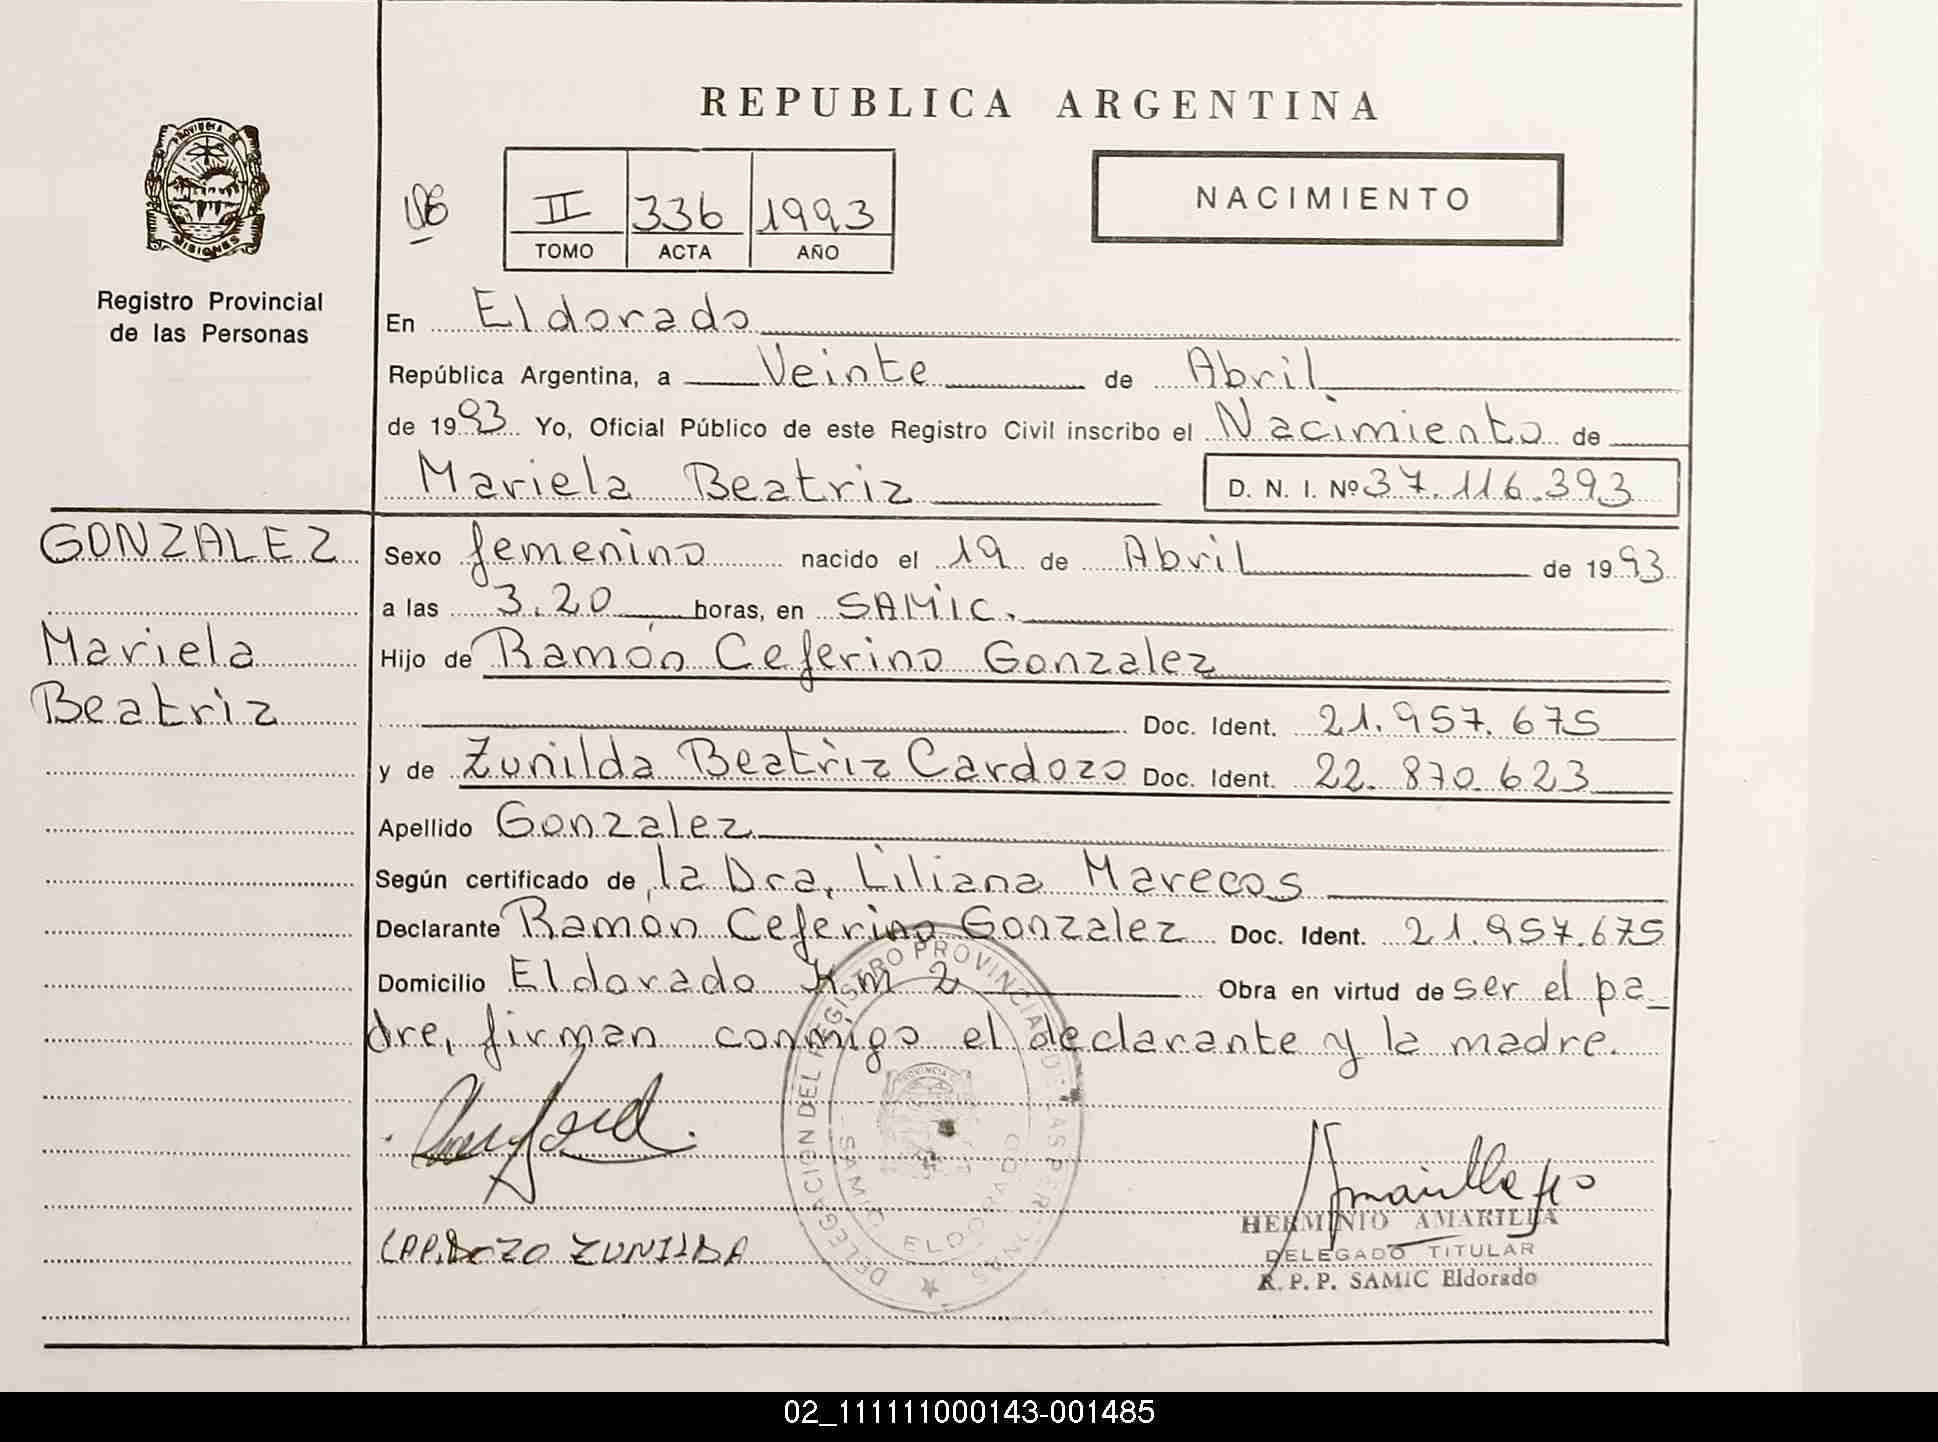 REPUBLICA ARGENTINA
PROVINCIA DE
MISIONES
Registro Provincial
de las Personas
II 336 1993
TOMO ACTA AÑO
NACIMIENTO
En Eldorado
República Argentina, a Veinte de Abril
de 1993 Yo, Oficial Público de este Registro Civil inscribo el Nacimiento de
Mariela Beatriz D. N. I. Nº 37.116.393
GONZALEZ
Mariela
Beatriz
Sexo femenino nacido el 19 de Abril de 1993
a las 3.20 horas, en SAMIC.
Hijo de Ramón Ceferino Gonzalez
Doc. Ident. 21.957.675
y de Zunilda Beatriz Cardozo Doc. Ident. 22.870.623
Apellido Gonzalez
Según certificado de la Dra. Liliana Marecos
Declarante Ramón Ceferino Gonzalez Doc. Ident. 21.957.675
Domicilio Eldorado Km 2 Obra en virtud de ser el pa_
dre, firman conmigo el declarante y la madre.
DELEGACION DEL REGISTRO PROVINCIAL DE LAS PERSONAS
SAMIC ELDORADO
CARDOZO ZUNILDA
HERMINIO AMARILLA
DELEGADO TITULAR
R. P. P. SAMIC Eldorado
02_111111000143-001485